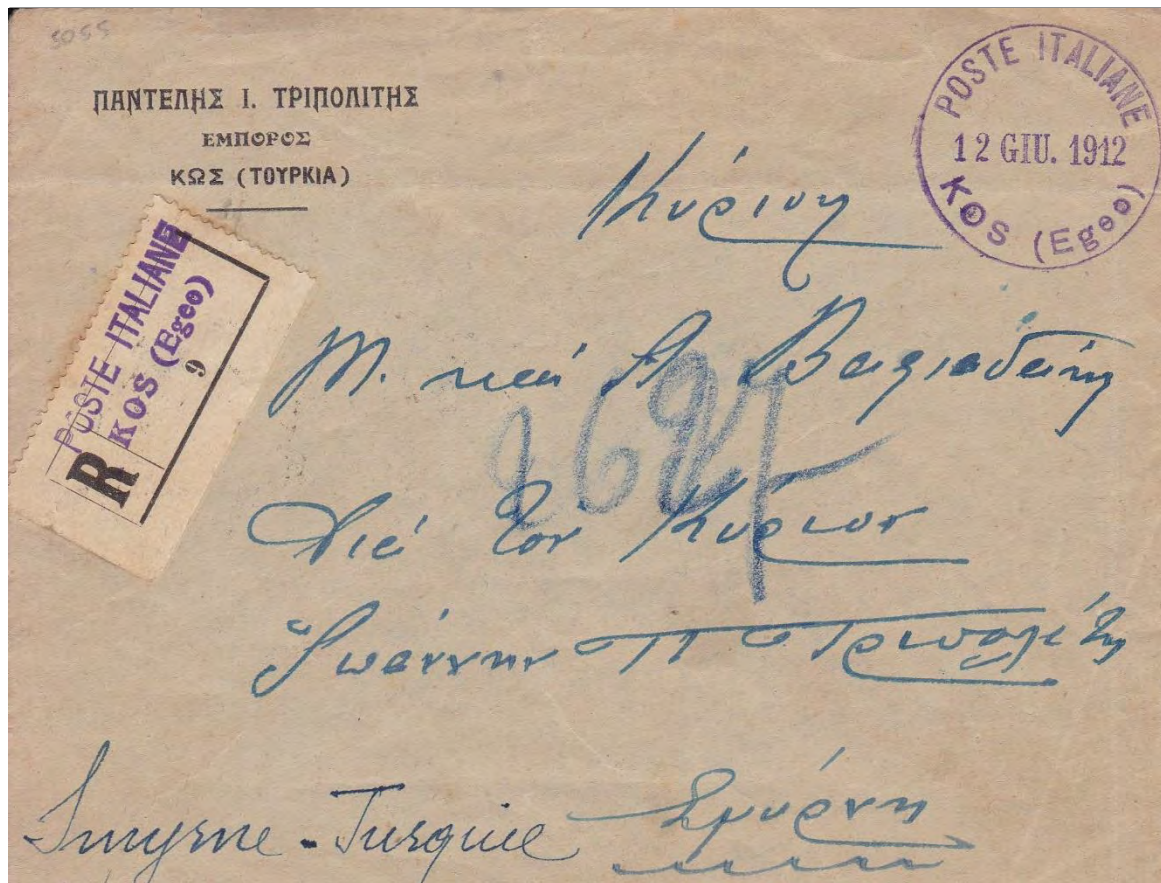 5055
ΠΑΝΤΕΛΗΣ Ι. ΤΡΙΠΟΛΙΤΗΣ
ΕΜΠΟΡΟΣ
ΚΩΣ (ΤΟΥΡΚΙΑ)
POSTE ITALIANE
12 GIU. 1912
KOS (Egeo)
POSTE ITALIANE
KOS (Egeo)
9
R
Μ. καί
Διά τον Κύριον
Ἰωάννην Π Τριπολίτην
Smyrne - Turquie
Σμύρνη